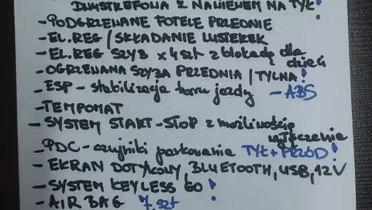 DWUSTREFOWA Z NAWIEWEM NA TYŁ!
- PODGRZEWANE FOTELE PRZEDNIE
- EL.REG / SKŁADANIE LUSTEREK
- EL.REG SZYB x 4szt z blokadą dla dzieci
- OGRZEWANA SZYBA PRZEDNIA / TYLNA!
- ESP - stabilizacja toru jazdy - ABS
- TEMPOMAT
- SYSTEM START-STOP z możliwością wyłączenia
- PDC - czujniki parkowania TYŁ + PRZÓD!
- EKRAN DOTYKOWY, BLUETOOTH, USB, 12V
- SYSTEM KEYLESS GO!
- AIR BAG 7 szt